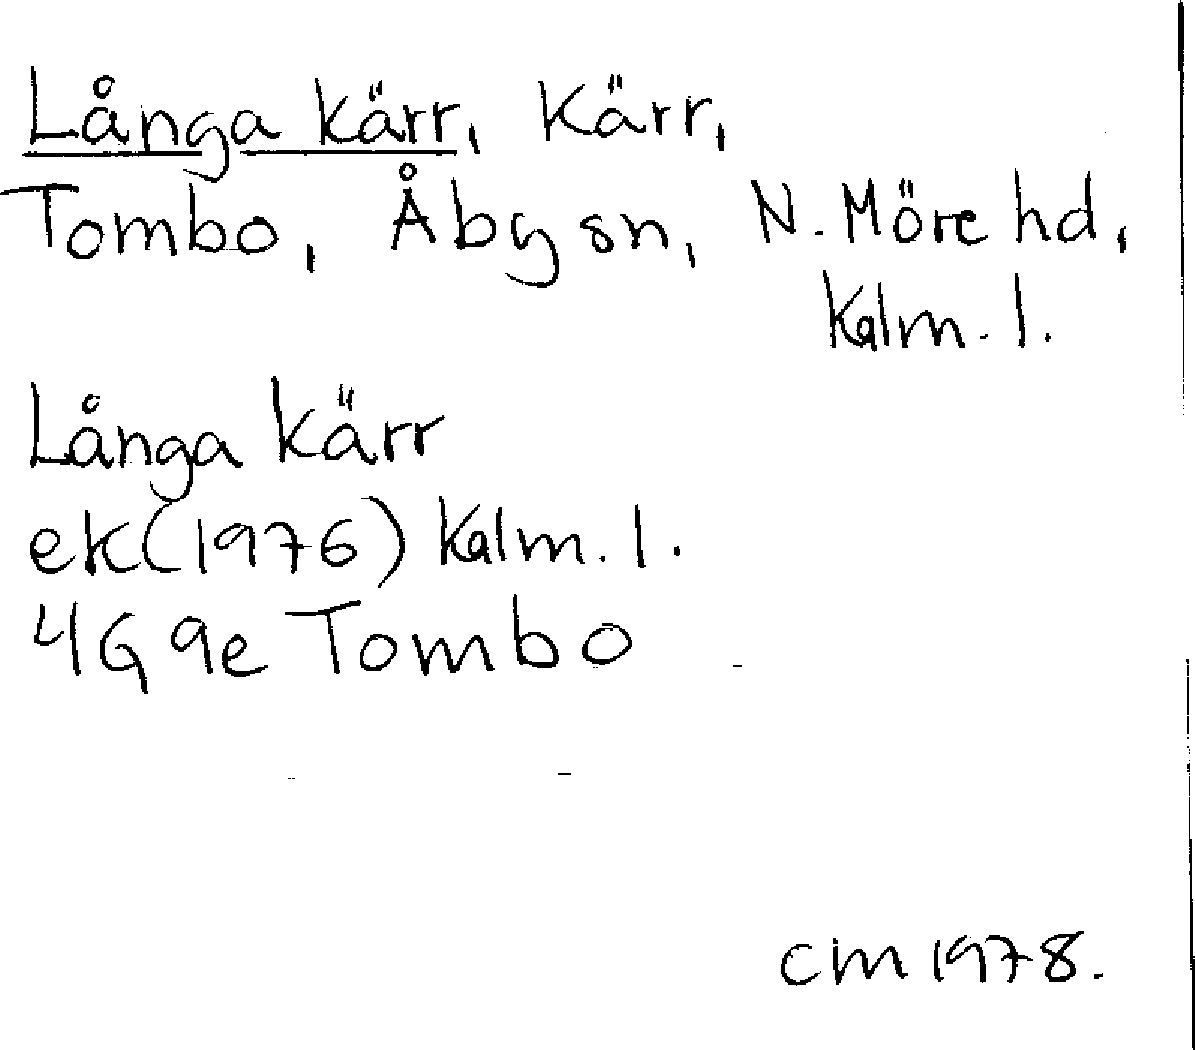 Långa kärr, Kärr,
Tombo, Åby sn, N. Möre hd,
Kalm. l.
Långa kärr
ek (1976) Kalm. l.
4G 9e Tombo
CM 1978.